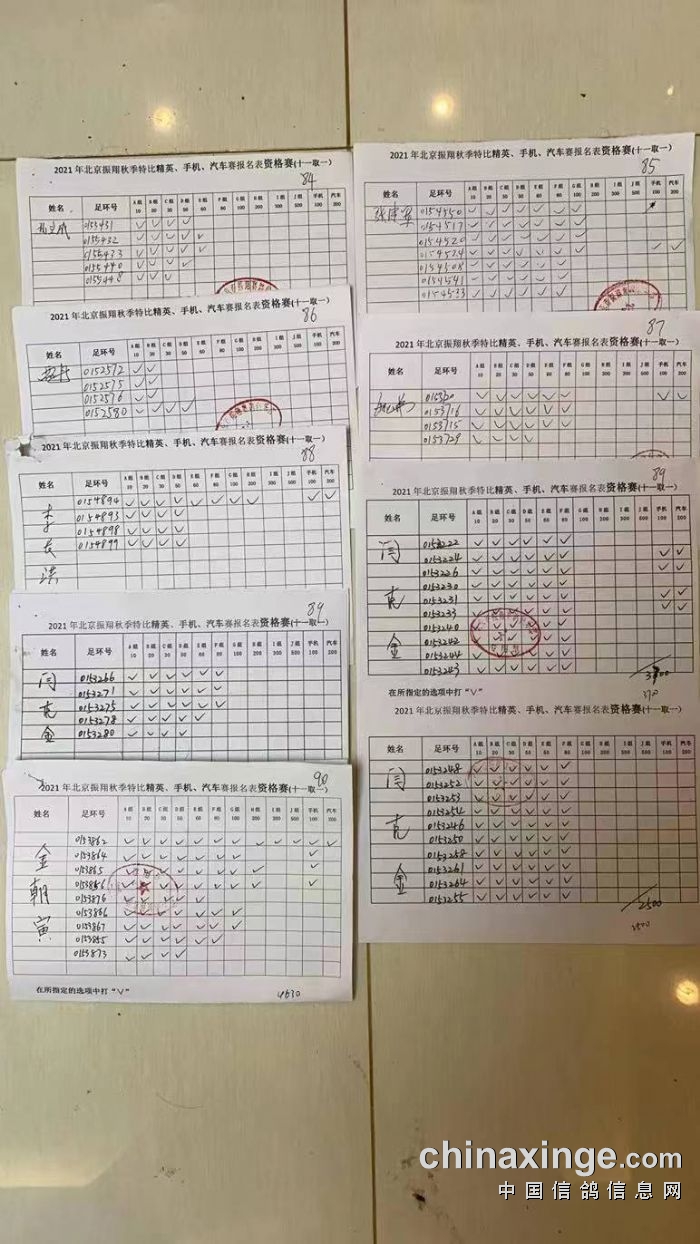 2021年北京振翔秋季特比精英、手机、汽车赛报名表资格赛(十一取一)
84
姓名 足环号 A组10 B组20 C组30 D组50 E组60 F组80 G组100 H组200 I组300 J组500 手机100 汽车200
0153431 ✓ ✓ ✓ ✓
0155432 ✓ ✓ ✓ ✓ ✓
0155433 ✓ ✓ ✓ ✓ ✓
0155440 ✓ ✓ ✓ ✓
0155448 ✓ ✓ ✓
2021年北京振翔秋季特比精英、手机、汽车赛报名表资格赛(十一取一)
85
姓名 足环号 A组10 B组20 C组30 D组50 E组60 F组80 G组100 H组200 I组300 J组500 手机100 汽车200
0154550
0154517
0154520
0154524
0154508
0154541
0154533
2021年北京振翔秋季特比精英、手机、汽车赛报名表资格赛(十一取一)
86
姓名 足环号 A组10 B组20 C组30 D组50 E组60 F组80 G组100 H组200 I组300 J组500 手机100 汽车200
0152572 ✓ ✓
0152575 ✓ ✓
0152576 ✓ ✓
0152580 ✓ ✓ ✓ ✓
2021年北京振翔秋季特比精英、手机、汽车赛报名表资格赛(十一取一)
87
姓名 足环号 A组10 B组20 C组30 D组50 E组60 F组80 G组100 H组200 I组300 J组500 手机100 汽车200
0153716
0153715
0153729
2021年北京振翔秋季特比精英、手机、汽车赛报名表资格赛(十一取一)
88
姓名 足环号 A组10 B组20 C组30 D组50 E组60 F组80 G组100 H组200 I组300 J组500 手机100 汽车200
李长洪
0154894 ✓ ✓ ✓ ✓ ✓ ✓ ✓ ✓ ✓ ✓
0154893 ✓ ✓ ✓ ✓
0154898 ✓ ✓ ✓ ✓
0154899 ✓ ✓ ✓ ✓
2021年北京振翔秋季特比精英、手机、汽车赛报名表资格赛(十一取一)
89
姓名 足环号 A组10 B组20 C组30 D组50 E组60 F组80 G组100 H组200 I组300 J组500 手机100 汽车200
闫克金
0153222
0153224
0153226
0153230
0153231
0153233
0153240
0153242
0153244
0153243
在所指定的选项中打“∨”
2021年北京振翔秋季特比精英、手机、汽车赛报名表资格赛(十一取一)
89
姓名 足环号 A组10 B组20 C组30 D组50 E组60 F组80 G组100 H组200 I组300 J组500 手机100 汽车200
闫克金
0153266 ✓ ✓ ✓ ✓ ✓ ✓
0153271 ✓ ✓ ✓ ✓ ✓ ✓
0153275 ✓ ✓ ✓ ✓ ✓ ✓
0153278 ✓ ✓ ✓ ✓ ✓
0153280 ✓ ✓ ✓ ✓
2021年北京振翔秋季特比精英、手机、汽车赛报名表资格赛(十一取一)
姓名 足环号 A组10 B组20 C组30 D组50 E组60 F组80 G组100 H组200 I组300 J组500 手机100 汽车200
闫克金
0153248
0153252
0153253
0153254
0153246
0153250
0153258
0153261
0153264
0153255
2500
2500
2021年北京振翔秋季特比精英、手机、汽车赛报名表资格赛(十一取一)
90
姓名 足环号 A组10 B组20 C组30 D组50 E组60 F组80 G组100 H组200 I组300 J组500 手机100 汽车200
金朝寅
0153862
0153864
0153865
0153876
0153866
0153867
0153855
0153873
在所指定的选项中打“∨”
4630
chinaxinge.com
中国信鸽信息网